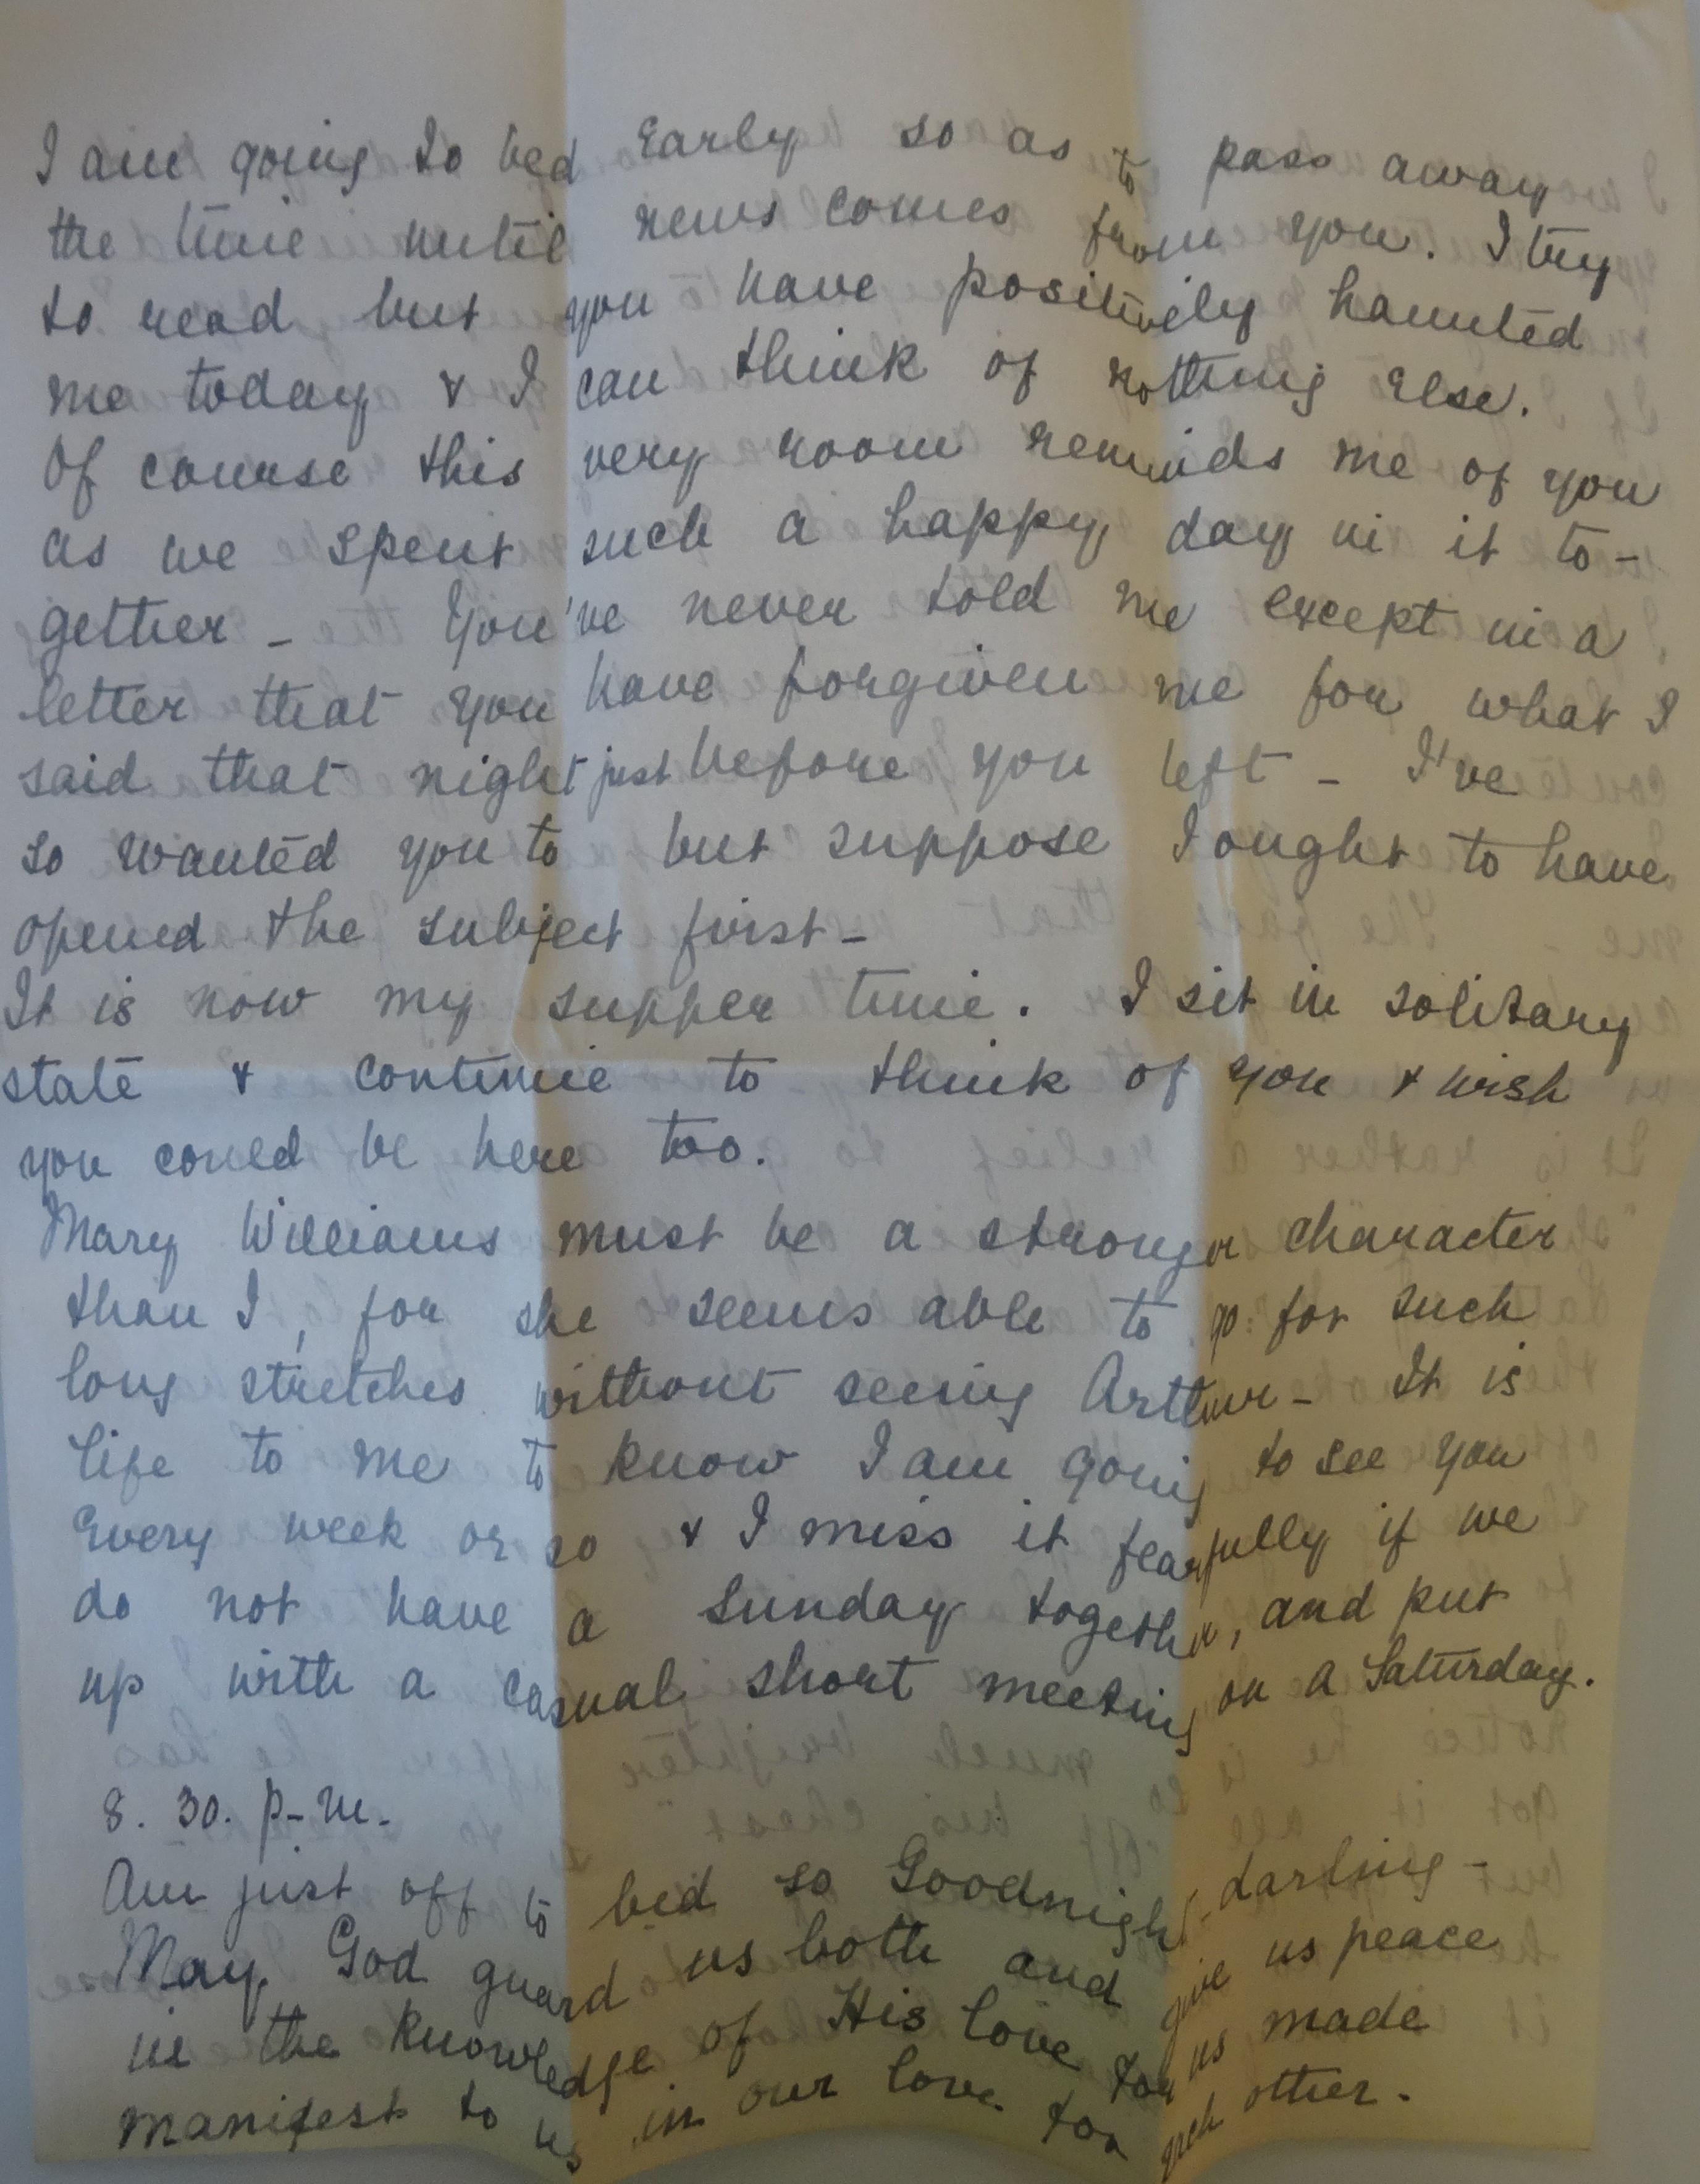 I am going to bed Early so as to pass away
the time until news comes from you. I try
to read but you have positively haunted
me today & I can think of nothing Else.
Of course this very room reminds me of you
as we spent such a happy day in it to-
gether - You've never told me except in a
letter that you have forgiven me for what I
said that night just before you left - I've
so wanted you to but suppose I ought to have
opened the subject first -
It is now my supper time. I sit in solitary
state & continue to think of you & wish
you could be here too.
Mary Williams must be a stronger character
than I, for she seems able to go for such
long stretches without seeing Arthur - It is
life to me to know I am going to see you
Every week or so & I miss it fearfully if we
do not have a Sunday together, and put
up with a casual short meeting on a Saturday.
8. 30. p-m.
Am just off to bed so Goodnight darling -
May God guard us both and give us peace
in the knowledge of His love for us made
manifest to us in our love for each other.